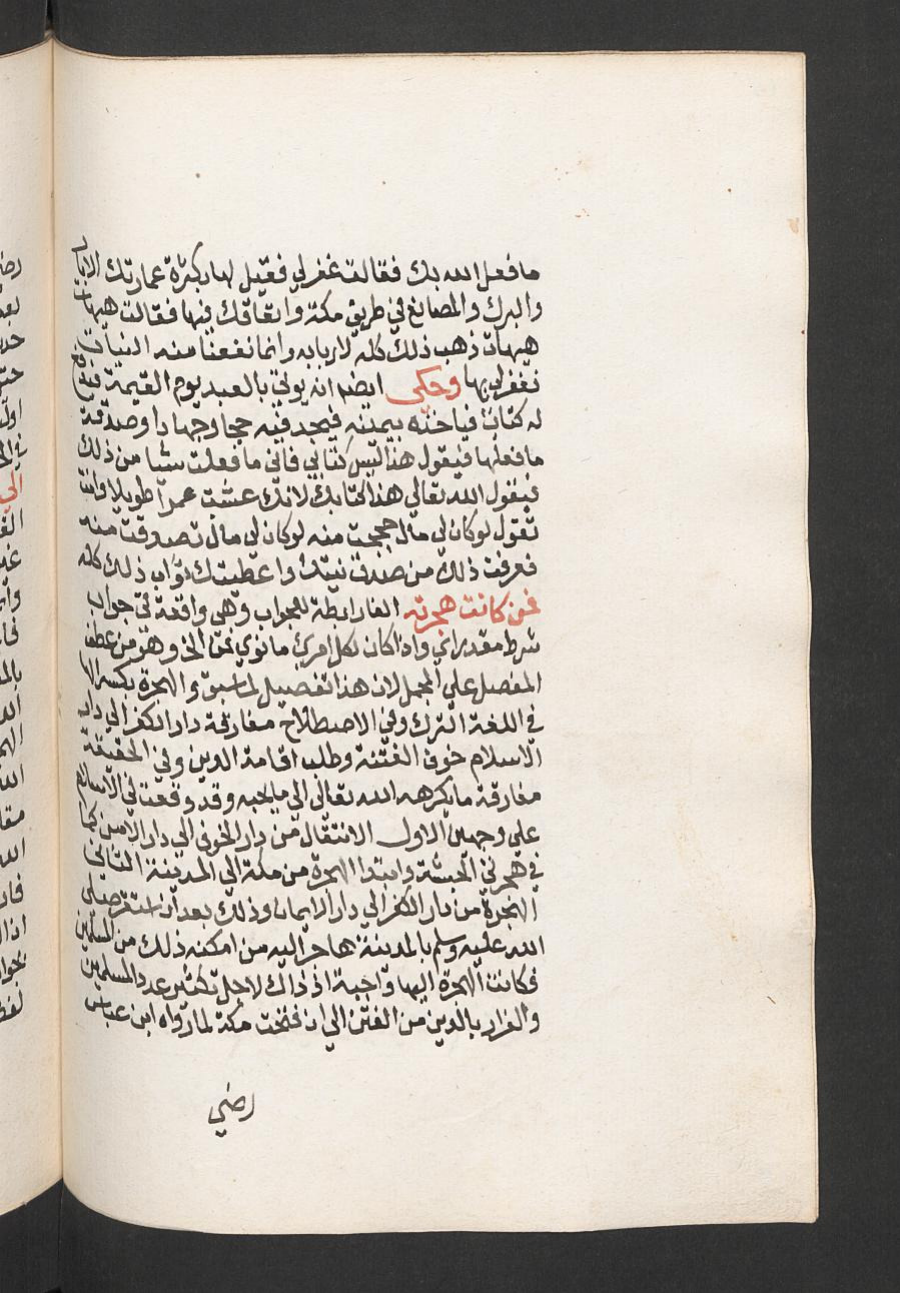 ما فعل الله بك فقالت غفر لي فقيل لها بكثرة عمارتك الابار
والبرك والمصانع في طريق مكة وانفاقك فيها فقالت هيهات
هيهات ذهب ذلك كله لاربابه وانما نفعنا منه النيات
فغفر لي بها وحكى ايضا انه يوتى بالعبد يوم القيمة فيدفع
له كتاب فياخذه بيمينه فيجد فيه حجا وجهادا وصدقة
ما فعلها فيقول هذا ليس كتابي فاني ما فعلت شيا من ذلك
فيقول الله تعالى هذا كتابك لانك عشت عمرا طويلا وانت
تقول لو كان لي مال حججت منه لو كان لي مال تصدقت منه
فعرفت ذلك من صدق نيتك واعطيتك ثواب ذلك كله
فمن كانت هجرته الفا رابطة للجواب وهي واقعة في جواب
شرط مقدر اي واذا كان لكل امرئ ما نوي فمن الخ وهو من عطف
المفصل على المجمل لان هذا تفصيل لما سبق والهجرة بكسر الها
في اللغة الترك وفي الاصطلاح مفارقة دار الكفر الى دار
الاسلام خوف الفتنة وطلب اقامة الدين وفي الحقيقة
مفارقة ما يكرهه الله تعالى الى ما يحبه وقد وقعت في الاسلام
على وجهين الاول الانتقال من دار الخوف الى دار الامن كما
في هجرتي الحبشة وابتدا الهجرة من مكة الى المدينة الثاني
الهجرة من دار الكفر الى دار الايمان وذلك بعد ان استقر صلى
الله عليه وسلم بالمدينة هاجر اليه من امكنه ذلك من المسلمين
فكانت الهجرة اليها واجبة اذ ذاك لاجل تكثير عدد المسلمين
والفرار بالدين من الفتن الى ان فتحت مكة لما رواه ابن عباس
رضي